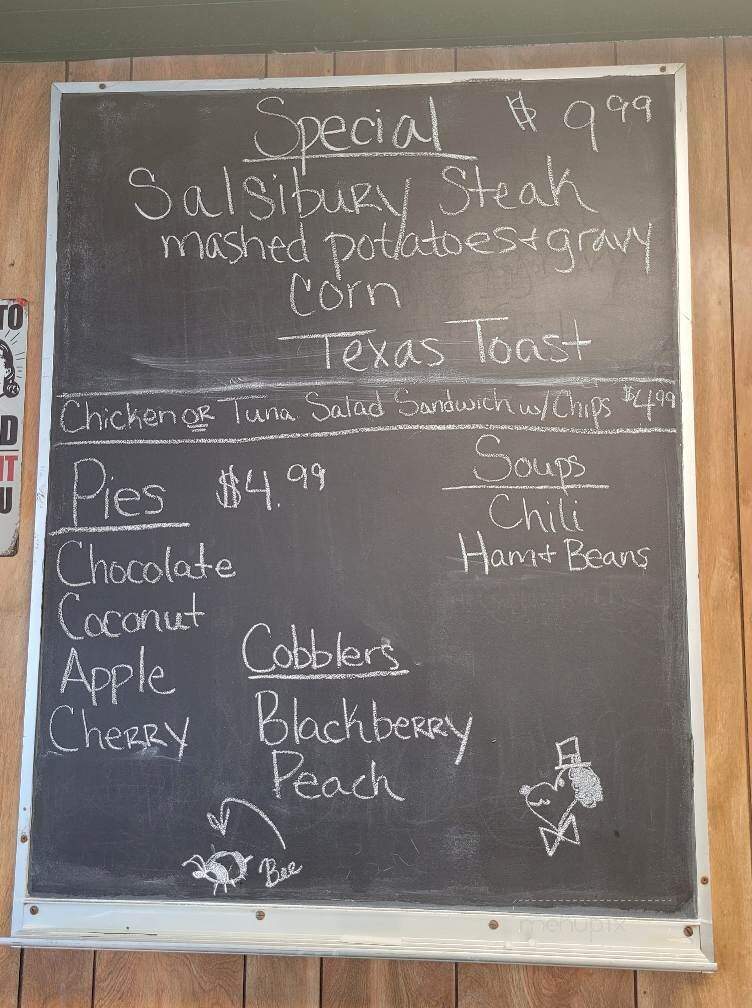 Special $ 9 99
Salsibury Steak
mashed potatoes + gravy
Corn
Texas Toast
Chicken OR Tuna Salad Sandwich w/ Chips $4 99
Pies $4.99
Chocolate
Coconut
Apple
Cherry
Soups
Chili
Ham + Beans
Cobblers
Blackberry
Peach
Bee
TO
D
IT
U
menupix